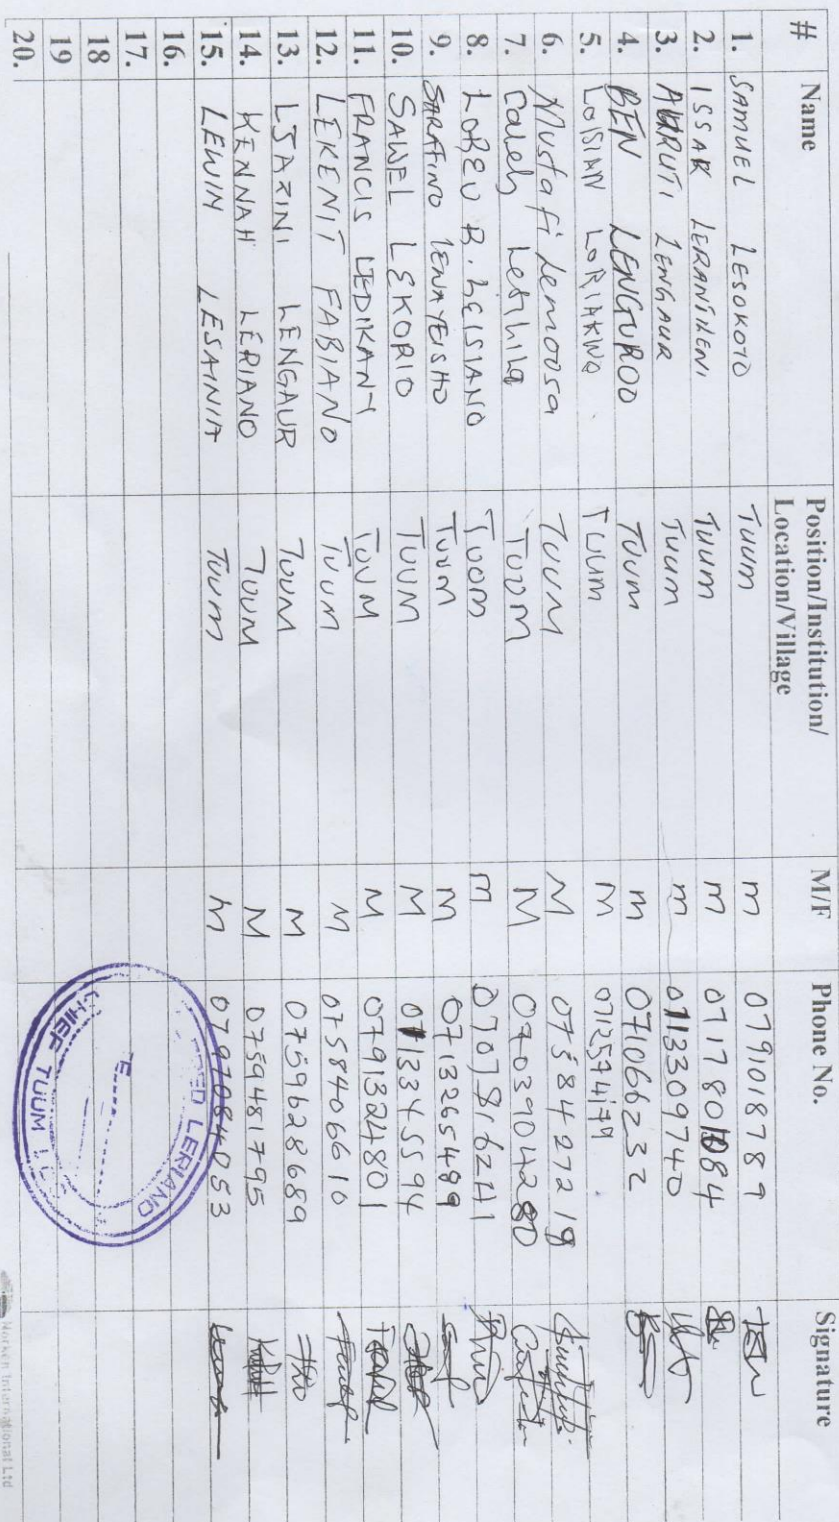 # Name Position/Institution/ Location/Village M/F Phone No. Signature
1. SAMUEL LESOKOTO Tuum m 0791018789
2. ISSAK LERANTILENI Tuum m 0717801084
3. LENGAUR Tuum m 0113309740
4. BEN LENGUROD Tuum m 071066232
5. LOISIAN LORIAKWO Tuum M 0712574179
6. Mustafi Lemoosa TUUM M 0758427218
7. Caleb Letilila TUUM M 0703904280
8. LOREU B. LEISIANO TUUM m
9. SARAFINO LENAYEISHO TUUM m 0713265489
10. SAWEL LEKORIO TUUM M 0713345594
11. FRANCIS LEDIKANY TUUM M 0791324801
12. LEKENIT FABIANO TUUM M 0758406610
13. LENGAUR TUUM M 0759628689
14. KENNAH LERIANO TUUM M 0759481795
15. LEWIN LESAINIA TUUM M 0797084053
16.
17.
18
19
20.
FRED LERIANO
CHIEF TUUM
Norken International Ltd